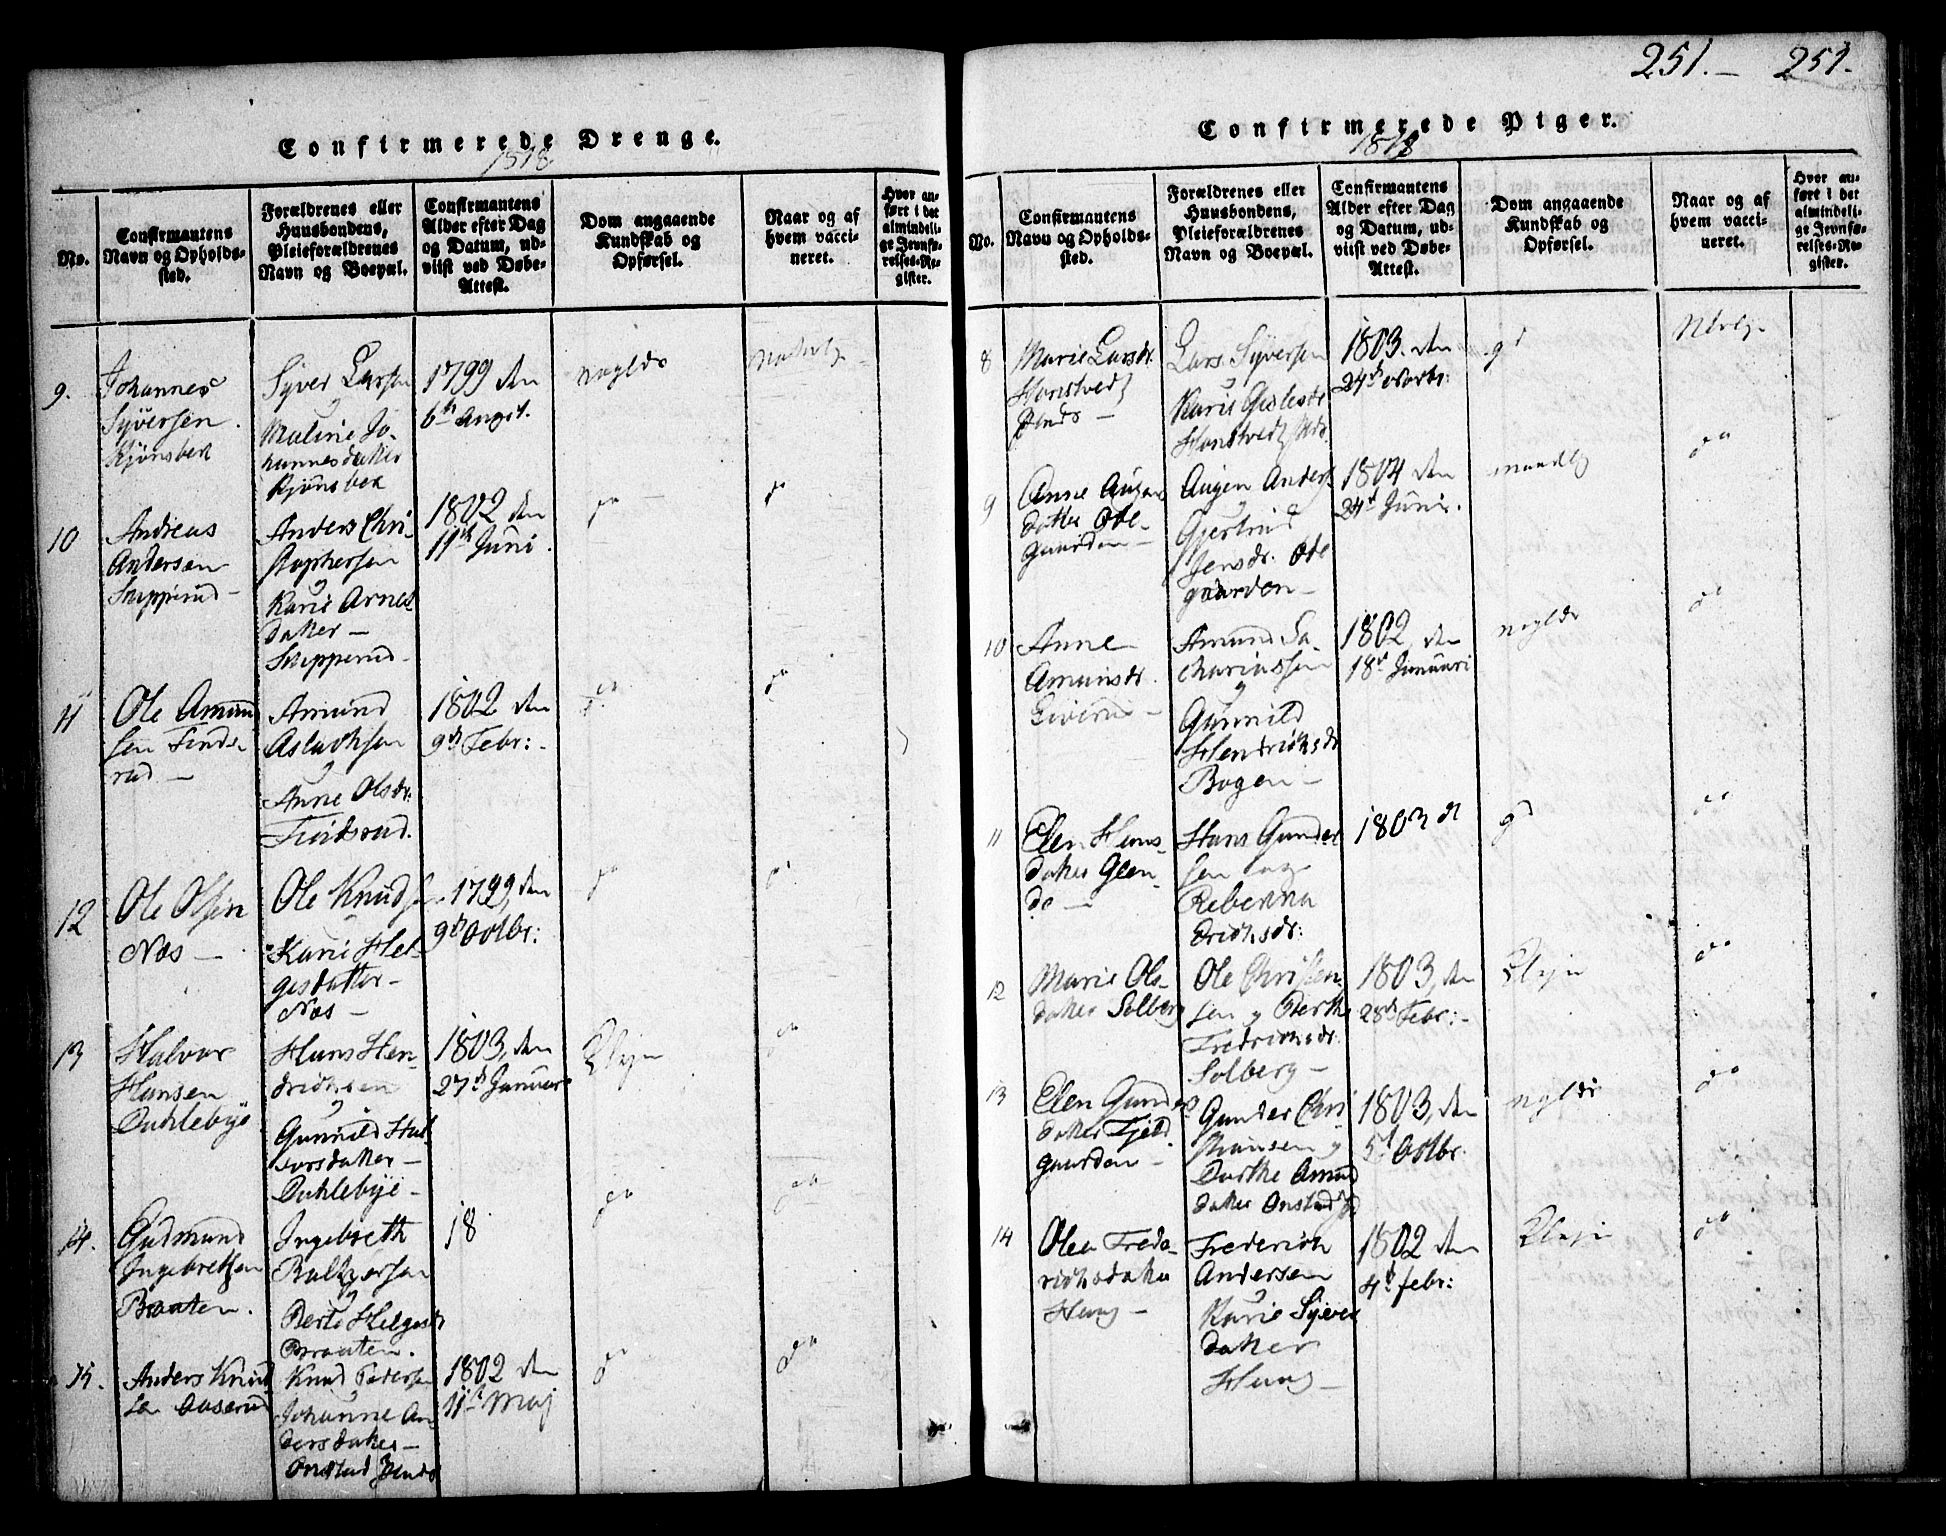 251.— 251.
Confirmerede Drenge.
1818
No.
Confirmantens
Navn og Opholds-
sted.
Forældrenes eller
Huusbondens,
Pleieforældrenes
Navn og Boepæl.
Confirmantens
Alder efter Dag
og Datum, ud-
viist ved Døbe-
Attest.
Dom angaaende
Kundskab og
Opførsel.
Naar og af
hvem vacci-
neret.
Hvor an-
ført i det
almindeli-
ge Jevnfø-
relses-Re-
gister.
9.
Johannes
Syversen
Kjønsber
Syver Larsen
Maline Jo-
hannesdatter
Kjønsber
1799 den
6te August.
10
Andreas
Andersen
Skipperud –
Anders Chri-
stophersen
Karie Arnes
datter —
Skipperud.
1802 den
11te Juni.
do
do
11
Ole Amund
sen Finds
rud —
Amund
Aslachsen
Anne Olsdr:
Findsrud.
1802 den
9de Febr: -
do
do
12
Ole Olsen
Næs —
Ole Knuds
Karie Hel-
gesdatter –
Næs –
1799, den
9de Octbr:
do
do
13
Halvor
Hansen
Dahlebye
Hans Hen-
drichsen
Gunnild Hal
vorsdatter –
Dahlebye –
1803, den
27de Januar
do
14.
Gudmund
Ingebretsen
Braaten.
Ingebreth
Baltzersen
Berte Helgesdr
Braaten.
18
do
do
15.
Anders Knud
sen Aaserud
Knud Pedersen
Johanne An-
dersdatter –
Onstad Ends
1802 den
11te Maj
do
do
Confirmerede Piger.
1818
No.
Confirmantens
Navn og Opholds-
sted.
Forældrenes eller
Huusbondens,
Pleieforældrenes
Navn og Boepæl.
Confirmantens
Alder efter Dag
og Datum, ud-
viist ved Døbe-
Attest.
Dom angaaende
Kundskab og
Opførsel.
Naar og af
hvem vacci-
neret.
Hvor an-
ført i det
almindeli-
ge Jevnfø-
relses-Re-
gister.
8
Marie Larsdr.
Honstvedt
Lars Syversen
Karie Gislesdr
Honstvedt
1803. den
24de Novbr:
gd
9
Anne Augens
datter Ode-
gaarden —
Augen Anders
Gjertrud
Jensdr. Ode
gaarden –
1804 den
24de Junii.
maadlg
do
10
Anne
Amundsdr.
Amund Za
chariassen
Gunnild
Hendrichsdr
Bogen –
1802 den
18de Januari
do
11
Elen Hans-
datter Glen-
do —
Hans Gunder
sen og
Rebecka
Erichsdr:
1803 d
gd
do
12
Marie Ols-
datter Solberg
Ole Christen-
sen og Berthe
Fredrichsdr.
Solberg –
1803, den
28de Febr: -
do
13
Elen Gunders
datter Fjeld
gaarden –
Gunder Chri
stiansen og
Dorthe Amund
datter Onstad
1803, den
5te Octbr.
do
14
Olea Frede-
richsdatter
Haug –
Frederich
Andersen
Karie Syvers
datter
Haug –
1802 den
4de febr:
do